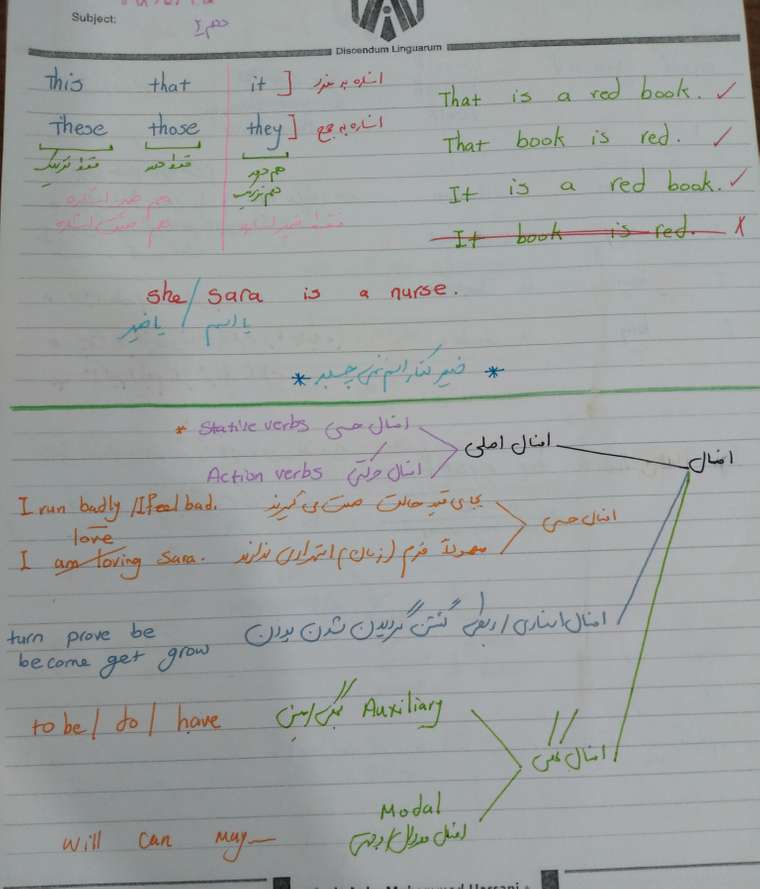 Subject:
Discendum Linguarum
This that it ] اشاره به مفرد
These those they ] اشاره به جمع
فقط نزدیک فقط دور هم دور
هم نزدیک
هم ضمیر اشاره
هم صفت اشاره فقط ضمیر اشاره
That is a red book. ✓
That book is red. ✓
It is a red book. ✓
It book is red. ✗
she / Sara is a nurse.
یا ضمیر / یا اسم
* ضمیر کنار اسم نمی چسبد *
افعال
افعال اصلی
* Stative verbs افعال حسی
Action verbs افعال حرکتی
افعال حسی
I run badly / I feel bad. بجای قید حالت صفت می گیرند
love
I am loving Sara. معمولاً فرم (زمان) استمراری ندارند
turn prove be افعال اسنادی / ربطی گشتن گردیدن شدن بودن
become get grow
افعال کمکی
to be / do / have Auxiliary
Modal
will can may افعال مدال /